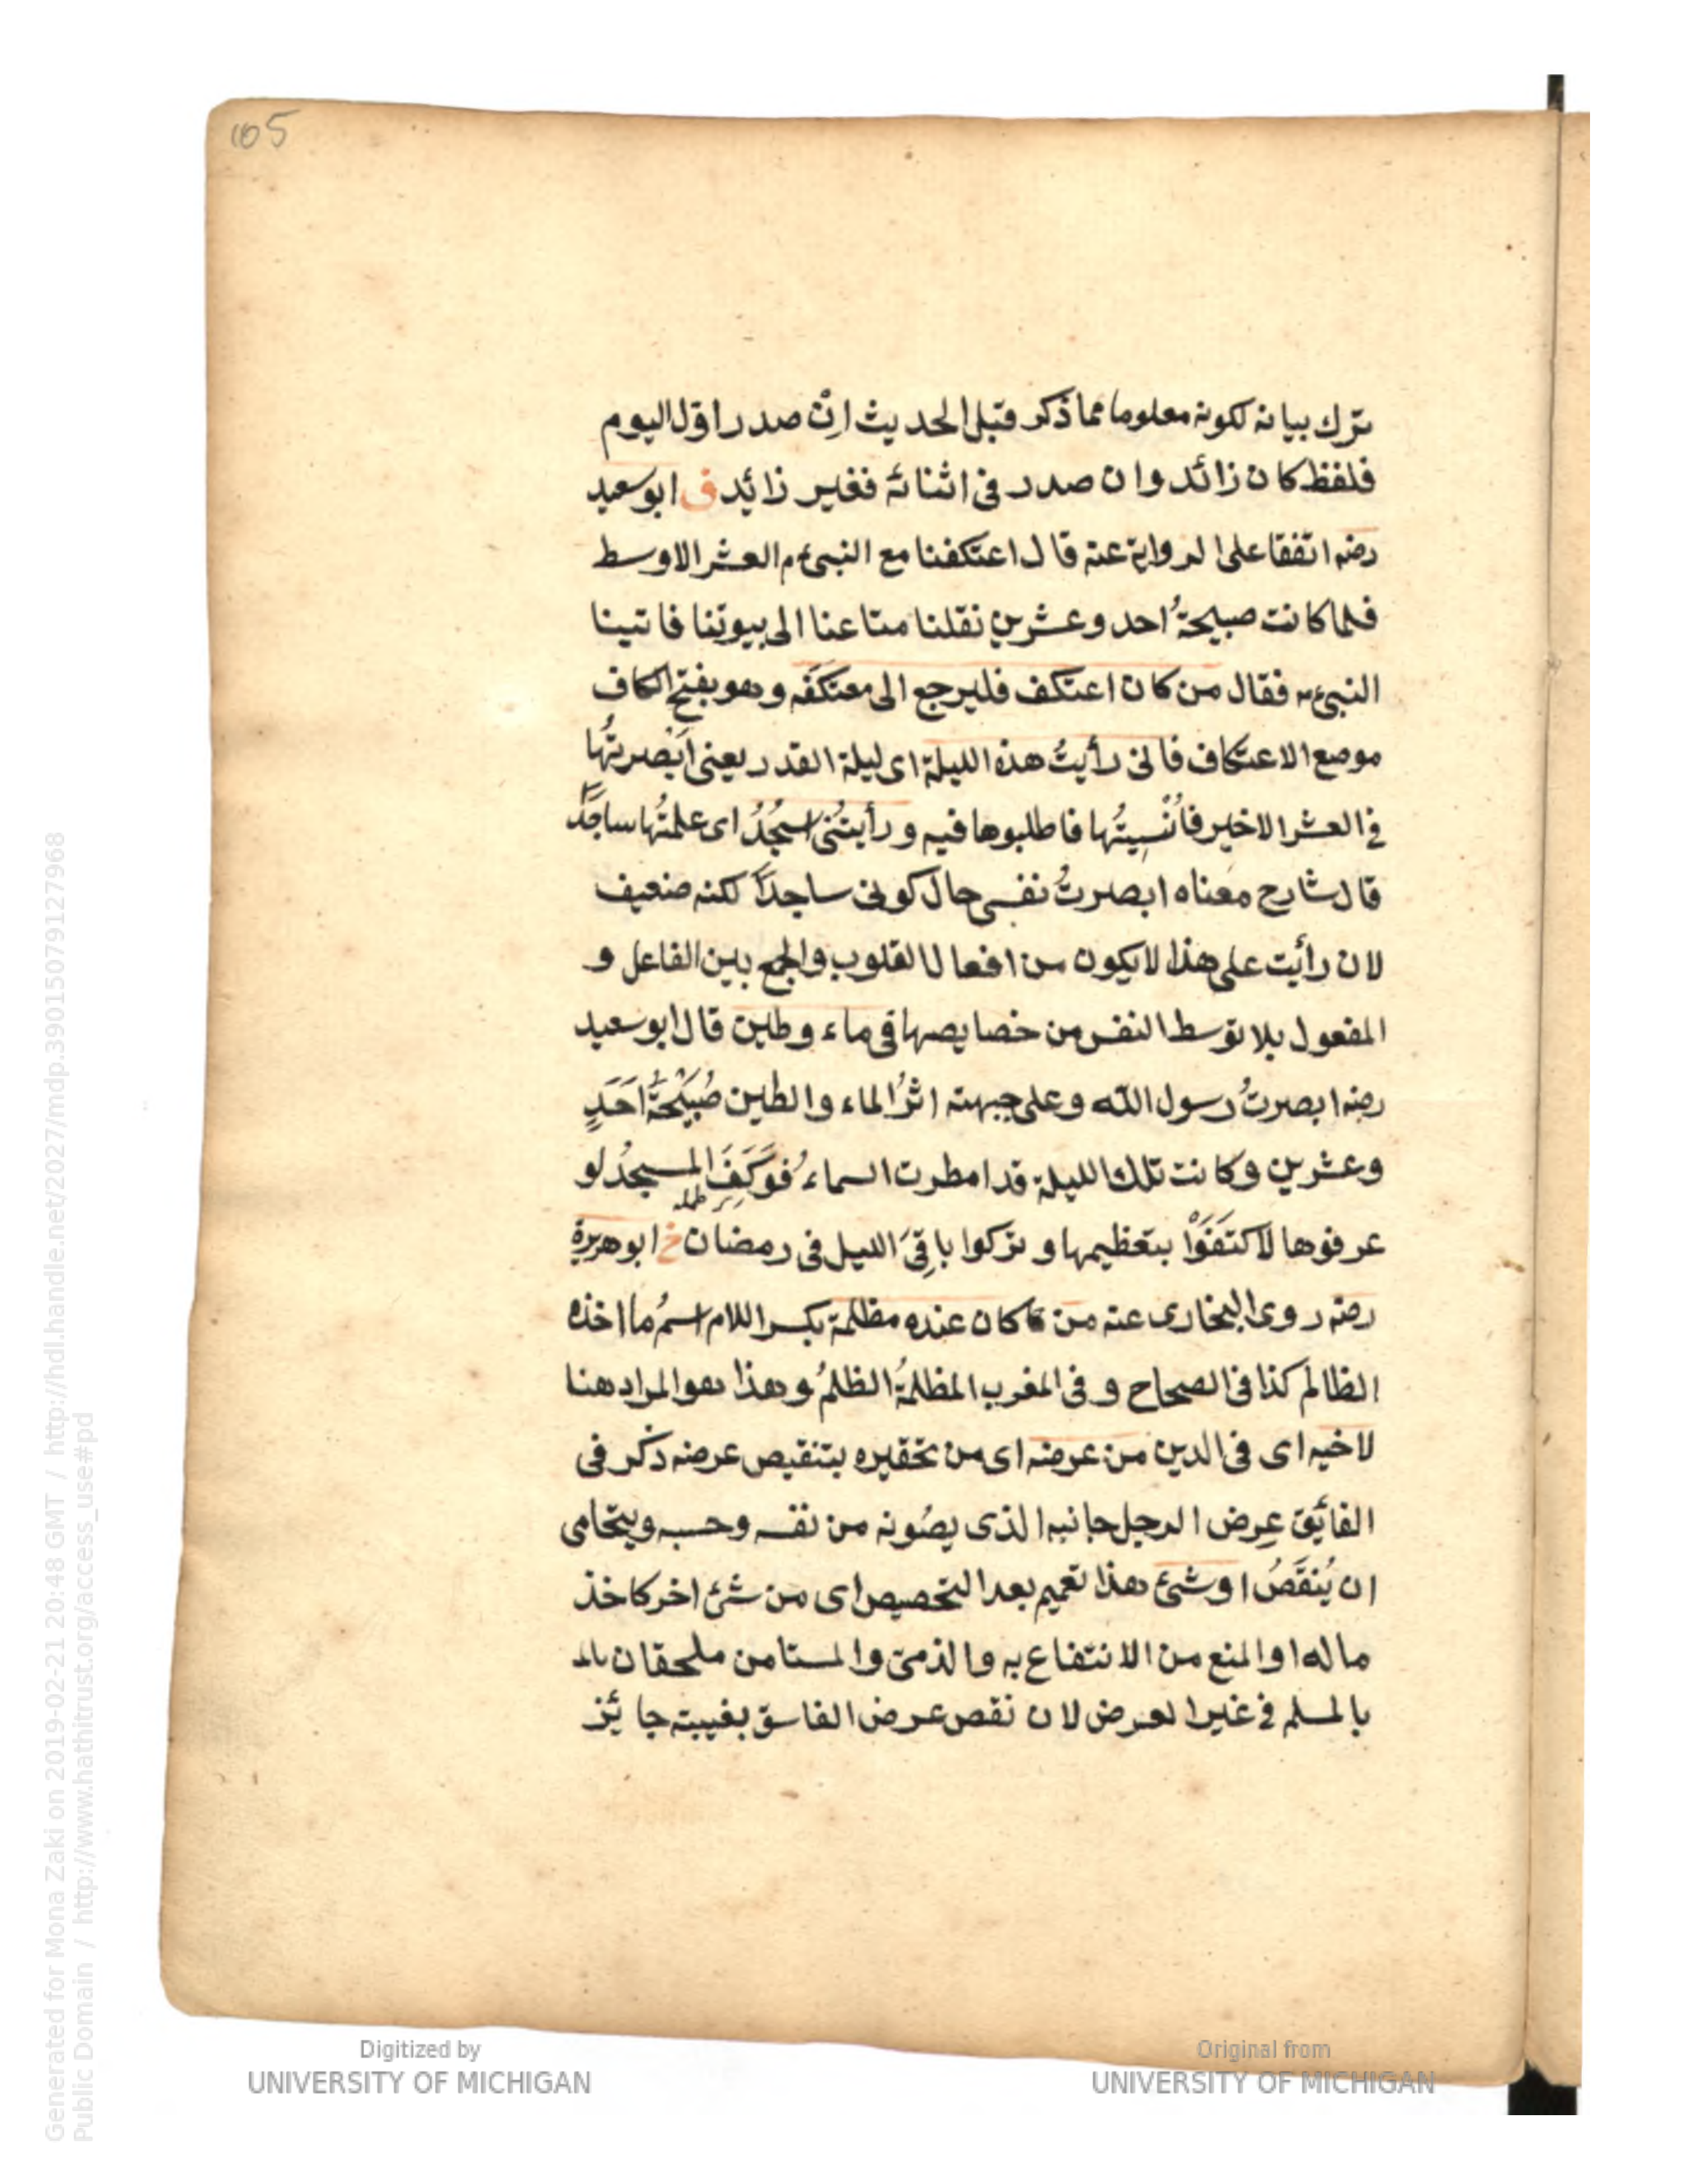 105
ترك بيانه لكونه معلوما مما ذكر قبل الحديث ان صدر اول اليوم
فلفظ كان زائد وان صدر في اثنائه فغير زائد ق ابو سعيد
رضه اتفقا على الرواية عنه قال اعتكفنا مع النبيء م العشر الاوسط
فلما كانت صبيحةُ احد وعشرين نقلنا متاعنا الى بيوتنا فاتينا
النبيء م فقال من كان اعتكف فليرجع الى معتكفَه وهو بفتح الكاف
موضع الاعتكاف فاني رأيتُ هذه الليلة اى ليلة القدر يعنى اَبْصرتُها
في العشر الاخير فاُنْسِيتُها فاطلبوها فيه ورأيتُنى اسجُدُ اى علمتُها ساجدًا
قال شارح معناه ابصرتُ نفسى حال كونى ساجدًا لكنه ضعيف
لان رأيت على هذا لا يكون من افعال القلوب والجمع بين الفاعل و
المفعول بلا توسط النفس من خصايصها في ماء وطين قال ابو سعيد
رضه ابصرتُ رسول الله وعلى جبهته اثرُ الماء والطين صُبَيْحَةَ اَحَدٍ
وعشرين وكانت تلك الليلة قد امطرت السماءُ فوَكَفَ المسجدُ لو
عرفوها لاكتَفَوْا بتعظيمها وتركوا باقِىَ الليل فى رمضان خ ابو هريرة
رضه روى البخارى عنه من كان عنده مظلمة بكسر اللام اسمُ ما اخذه
الظالم كذا فى الصحاح وفى المغرب المظلمةُ الظلمُ وهذا هو المراد هنا
لاخيه اى فى الدين من عرضه اى من تحقيره بتنقيص عرضه ذكر فى
الفائق عِرض الرجل جانبه الذى يصُونه من نفسه وحسبه ويتحامى
ان يُنقَصُ او شىء هذا تعميم بعد التخصيص اى من شىء اخر كاخذ
ماله او المنع من الانتفاع به والذمىّ والمستامن ملحقان بالمـ
بالمسلم في غير العرض لان نقص عرض الفاسق بغيبته جائز
Digitized by
UNIVERSITY OF MICHIGAN
Original from
UNIVERSITY OF MICHIGAN
Generated for Mona Zaki on 2019-02-21 20:48 GMT / http://hdl.handle.net/2027/mdp.39015079127968
Public Domain / http://www.hathitrust.org/access_use#pd